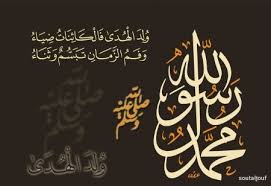 وُلِدَ الْهُدَىٰ فَالْكَائِنَاتُ ضِيَاءُ
وَفَمُ الزَّمَانِ تَبَسُّمٌ وَثَنَاءُ
محمد رسول الله
صلى الله عليه وسلم
صلى الله عليه وسلم
وُلِدَ الْهُدَىٰ
soutaljouf